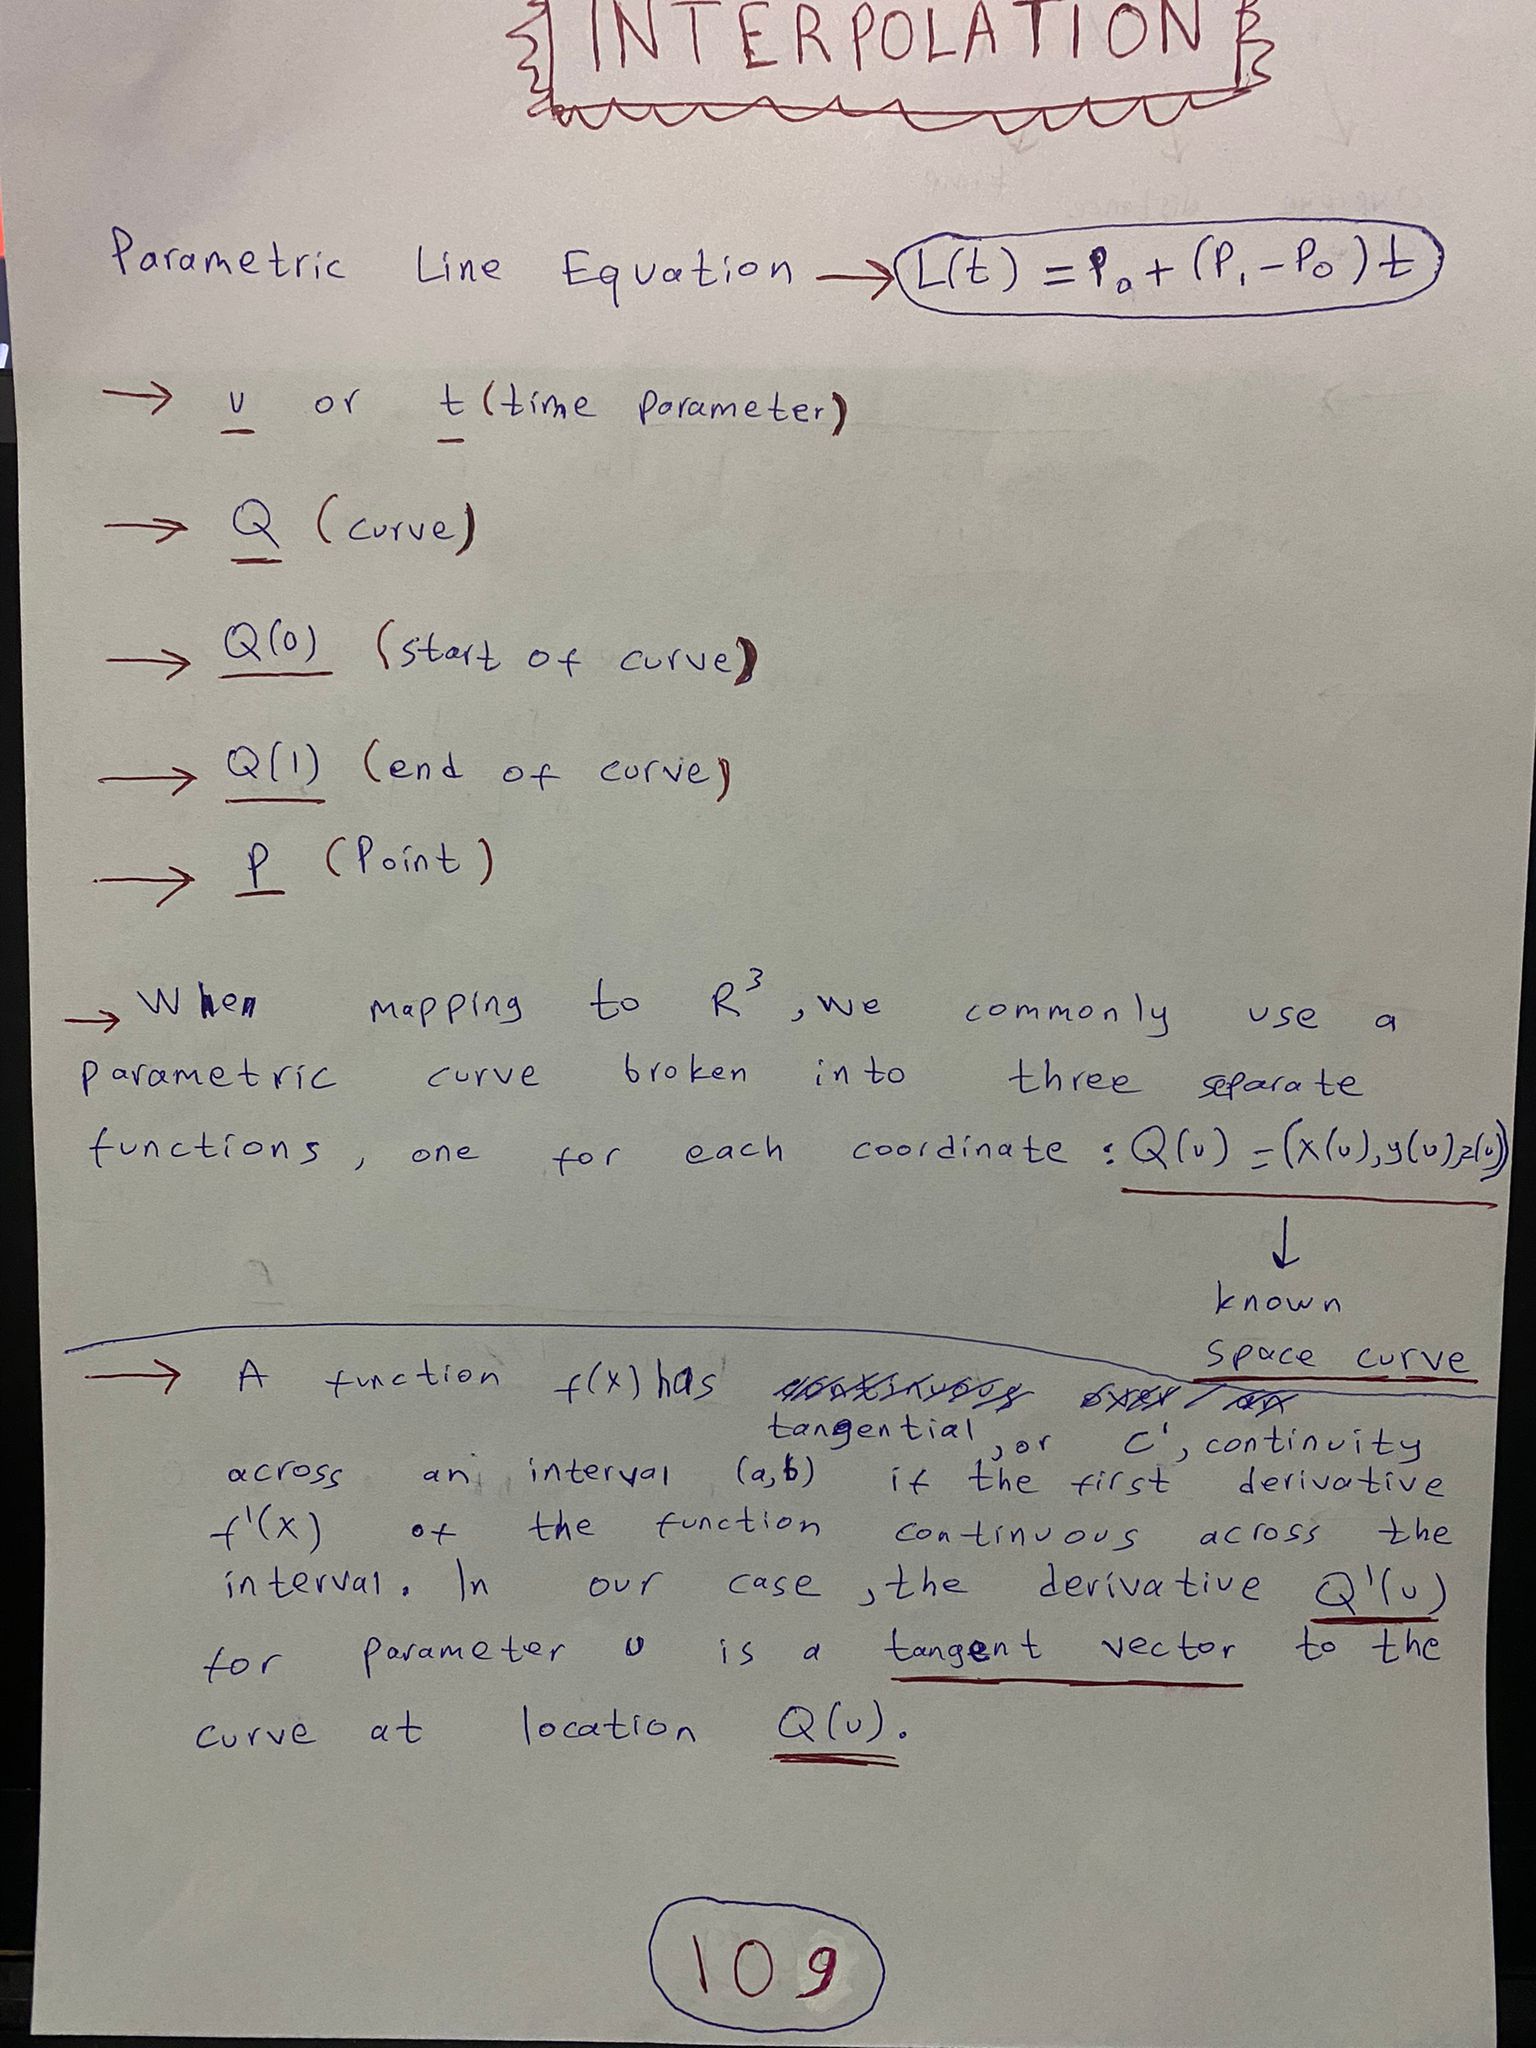 INTERPOLATION
Parametric Line Equation → L(t) = P₀ + (P₁ - P₀)t
→ u or t (time parameter)
→ Q (curve)
→ Q(0) (start of curve)
→ Q(1) (end of curve)
→ P (Point)
→ When mapping to R³, we commonly use a
parametric curve broken into three separate
functions, one for each coordinate : Q(u) = (x(u), y(u), z(u))
↓
known
space curve
→ A function f(x) has
tangential, or C¹, continuity
across an interval (a,b) if the first derivative
f'(x) of the function continuous across the
interval. In our case, the derivative Q'(u)
for parameter u is a tangent vector to the
curve at location Q(u).
109